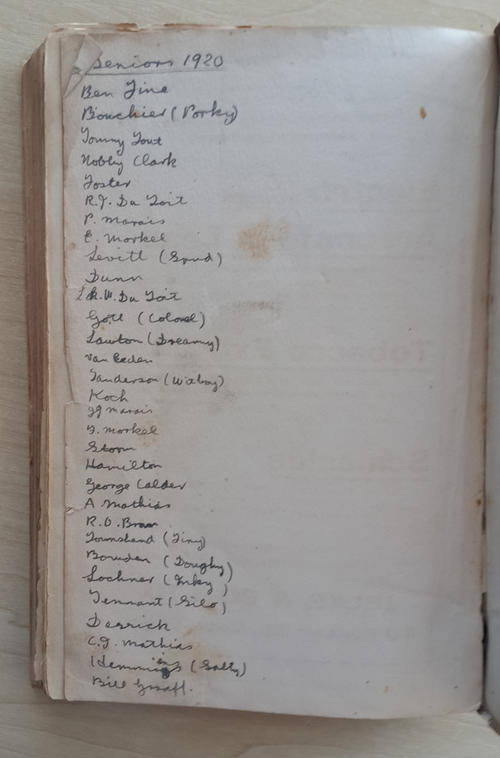 Seniors 1920
Ben Fine
Bouchier (Porky)
Tommy Tout
Nobby Clark
Foster
R.J. Du Toit
P. Marais
E. Morkel
Levitt (Spud)
Dunn
R.W. Du Toit
Gott (Colonel)
Lawton (Dreamy)
Van Eeden
Sanderson
Koch
Marais
F. Morkel
Storm
Hamilton
George Calder
A Mathias
R.O. Braon
Townshend (Tiny)
Bowden (Doughy)
Lochner (Inky)
Tennant (Silo)
Derrick
C.J. Mathias
Hemmings (Salty)
Bill Graaff.